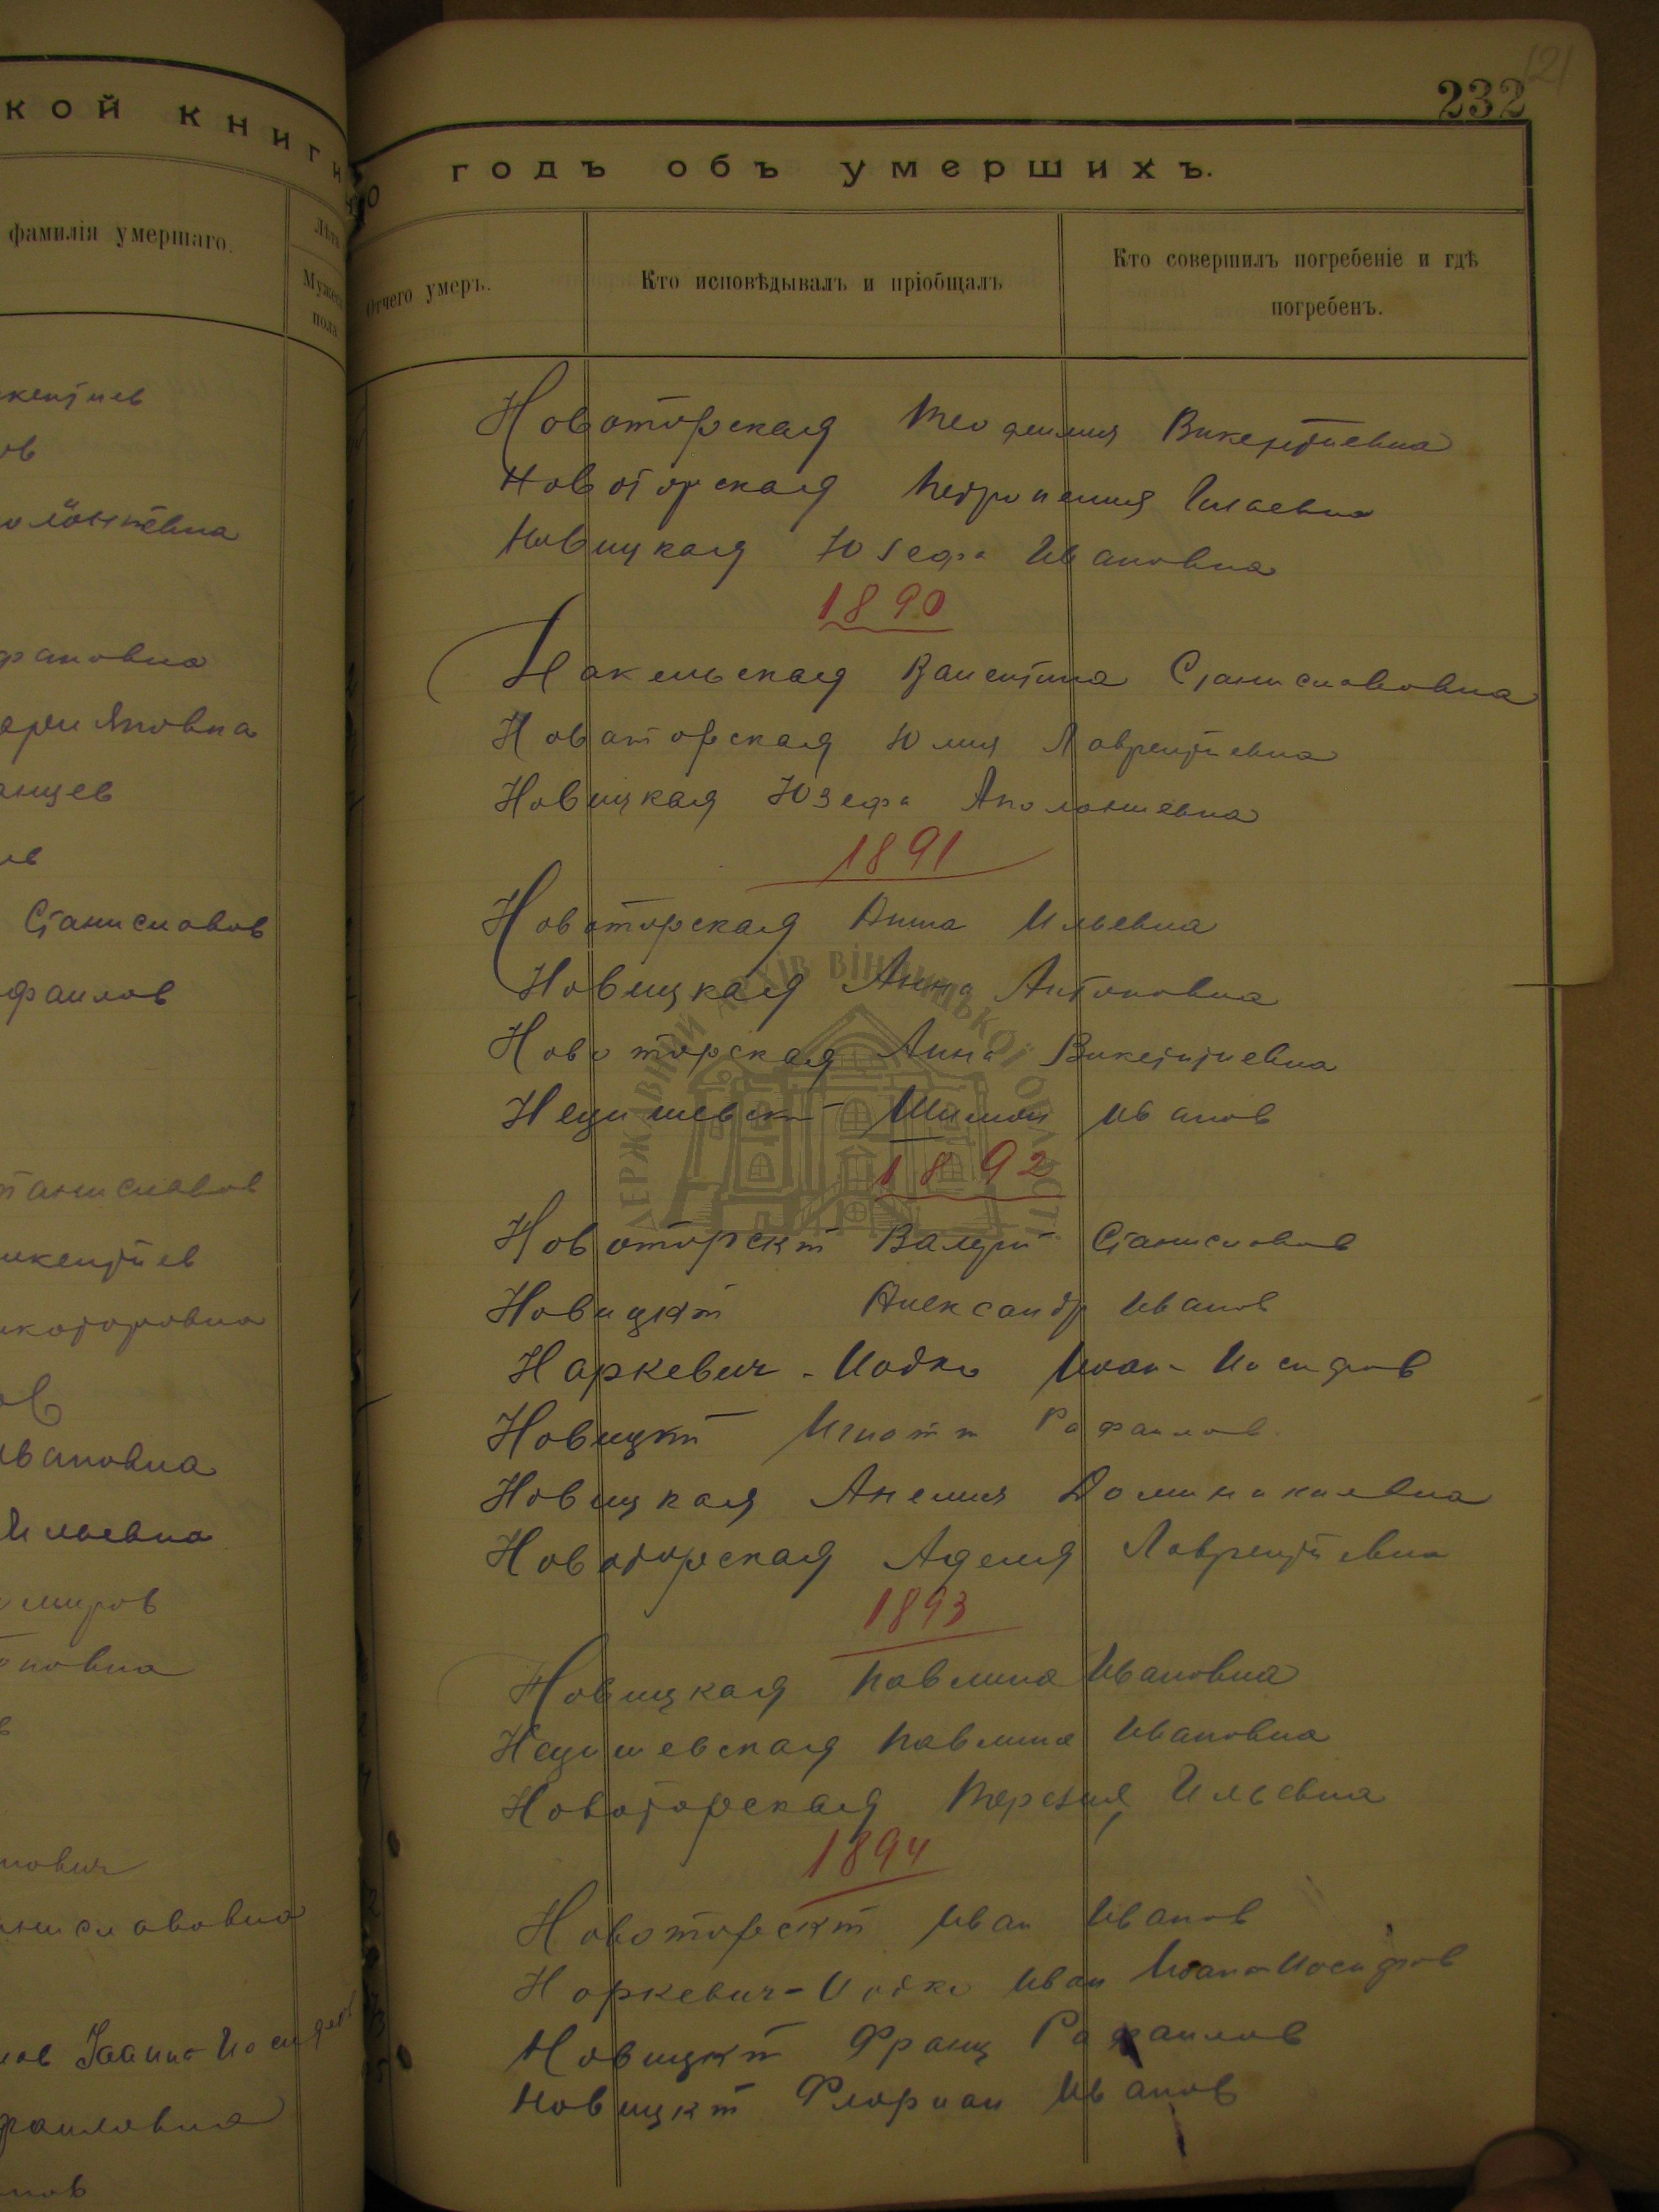 кой книги
фамилія умершаго.
Лѣта
Мужеск.
пола
кентиев
ов
фановна
анцев
Станиславов
фаилов
таниславов
икентиев
ов
Ивановна
Ильевна
миров
новна
нович
ниславовна
фаиловна
121
232
годъ объ умершихъ.
Отчего умеръ.
Кто исповѣдывалъ и пріобщалъ
Кто совершилъ погребеніе и гдѣ
погребенъ.
Новоторская Теофилия Викентиевна
Новоторская Петронелия Илаевна
Новицкая Юзефа Ивановна
1890
Накельская Валентина Станиславовна
Новоторская Юлия Лаврентиевна
Новицкая Юзефа Аполониевна
1891
Новоторская Анна Ильевна
Новицкая Анна Антоновна
Новоторская Анна Викентиевна
Шимон Иванов
1892
Новоторскій Валерій Станиславов
Новицкій Александр Иванов
Наркевич-Иодко Иоан-Иосифов
Новицкій Игнатій Рафаилов
Новицкая Анелия Доминикиевна
Новоторская Аделя Лаврентиевна
1893
Новицкая Павлина Ивановна
Недишевская Павлина Ивановна
Новоторская Терезия Ильевна
1894
Новоторскій Иван Иванов
Наркевич-Иодко Иван Иоано-Иосифов
Новицкій Франц Рафаилов
Новицкій Флориан Иванов
ДЕРЖАВНИЙ АРХІВ ВІННИЦЬКОЇ ОБЛАСТІ